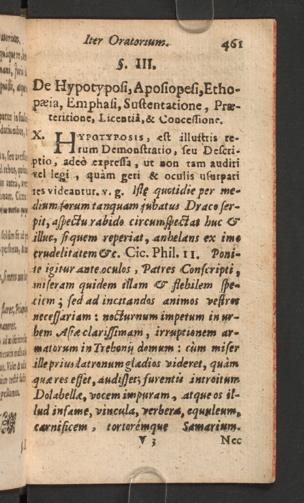 Iter Oratorium. 461
§. III.
De Hypotyposi, Aposiopesi, Etho-
pæia, Emphasi, Sustentatione, Præ-
teritione, Licentiâ, & Concessione.
X. HYPOTYPOSIS, est illustris re-
rum Demonstratio, seu Descri-
ptio, adeò expressa, ut non tam audiri
vel legi, quàm geri & oculis usurpari
res videantur. v. g. Iste quotidie per me-
dium forum tanquam jubatus Draco ser-
pit, aspectu rabido circumspectas huc &
illuc, si quem reperiat, anhelans ex imo
crudelitatem &c. Cic. Phil. 11. Poni-
te igitur ante oculos, Patres Conscripti,
miseram quidem illam & flebilem spe-
ciem; sed ad incitandos animos vestros
necessariam: nocturnum impetum in ur-
bem Asiæ clarissimam, irruptionem ar-
matorum in Trebonij domum: cùm miser
ille prius latronum gladios videret, quàm
quæ res esset, audisset; furentis introitum
Dolabellæ, vocem impuram, atque os il-
lud infame, vincula, verbera, equuleum,
carnificem, tortoremque Samarium.
V 3 Nec